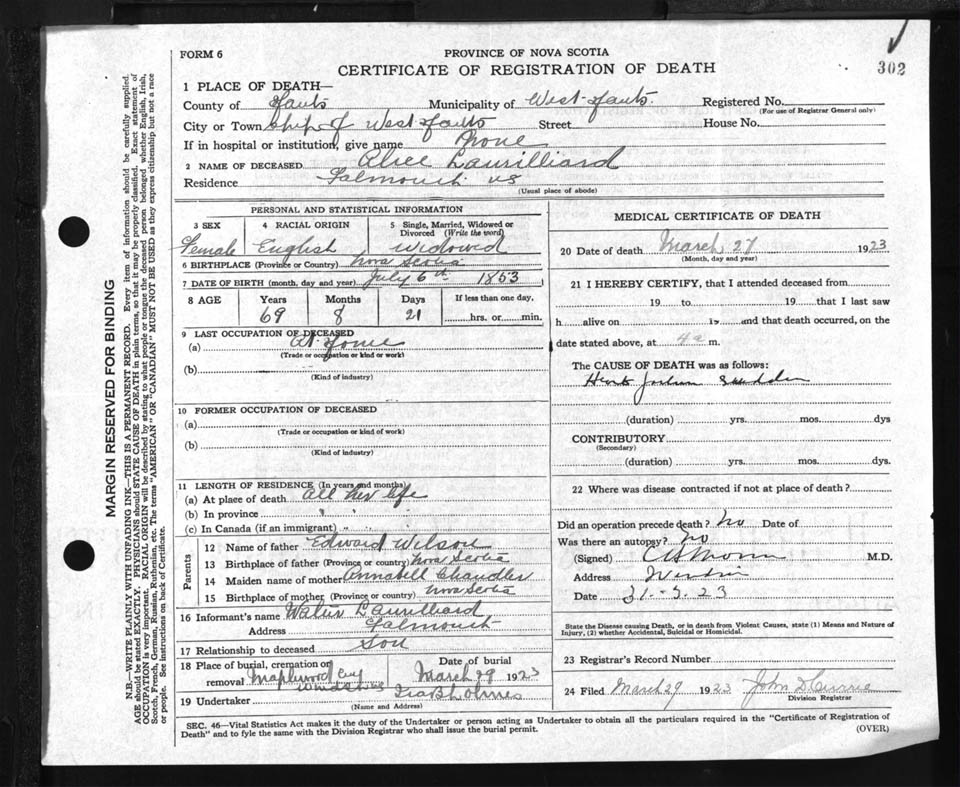 FORM 6
PROVINCE OF NOVA SCOTIA
CERTIFICATE OF REGISTRATION OF DEATH
302
1 PLACE OF DEATH—
County of Hants Municipality of West Hants. Registered No.
(For use of Registrar General only)
City or Town West Hants Street House No.
If in hospital or institution, give name None
2 NAME OF DECEASED Alice Laurilliard
Residence Falmouth NS
(Usual place of abode)
PERSONAL AND STATISTICAL INFORMATION
3 SEX 4 RACIAL ORIGIN 5 Single, Married, Widowed or Divorced (Write the word)
Female English Widowed
6 BIRTHPLACE (Province or Country) Nova Scotia
7 DATE OF BIRTH (month, day and year) July 6th 1853
8 AGE Years Months Days If less than one day,
69 8 21 hrs. or min.
9 LAST OCCUPATION OF DECEASED
(a) At Home
(Trade or occupation or kind of work)
(b)
(Kind of industry)
10 FORMER OCCUPATION OF DECEASED
(a)
(Trade or occupation or kind of work)
(b)
(Kind of industry)
11 LENGTH OF RESIDENCE (In years and months)
(a) At place of death All her life
(b) In province " " "
(c) In Canada (if an immigrant) " " "
Parents
12 Name of father Edward Wilson
13 Birthplace of father (Province or country) Nova Scotia
14 Maiden name of mother Annabell Chandler
15 Birthplace of mother (Province or country) Nova Scotia
16 Informant's name Walter Laurilliard
Address Falmouth
17 Relationship to deceased Son
18 Place of burial, cremation or removal Maplewood Cey Windsor NS Date of burial March 29 1923
19 Undertaker
(Name and Address)
MEDICAL CERTIFICATE OF DEATH
20 Date of death March 27 1923
(Month, day and year)
21 I HEREBY CERTIFY, that I attended deceased from
19 to 19 that I last saw
h alive on 19 and that death occurred, on the
date stated above, at 4 a m.
The CAUSE OF DEATH was as follows:
Heart failure sudden
(duration) yrs. mos. dys
CONTRIBUTORY
(Secondary)
(duration) yrs. mos. dys.
22 Where was disease contracted if not at place of death?
Did an operation precede death? No Date of
Was there an autopsy? No
(Signed) M.D.
Address Windsor
Date 31-3-23
State the Disease causing Death, or in death from Violent Causes, state (1) Means and Nature of
Injury, (2) whether Accidental, Suicidal or Homicidal.
23 Registrar's Record Number
24 Filed March 29 1923 John D
Division Registrar
SEC. 46—Vital Statistics Act makes it the duty of the Undertaker or person acting as Undertaker to obtain all the particulars required in the "Certificate of Registration of
Death" and to fyle the same with the Division Registrar who shall issue the burial permit.
(OVER)
MARGIN RESERVED FOR BINDING
N.B.—WRITE PLAINLY WITH UNFADING INK—THIS IS A PERMANENT RECORD. Every item of information should be carefully supplied.
AGE should be stated EXACTLY. PHYSICIANS should STATE CAUSE OF DEATH in plain terms, so that it may be properly classified. Exact statement of
OCCUPATION is very important. RACIAL ORIGIN will be described by stating to what people or tongue the deceased person belonged whether English, Irish,
Scotch, French, German, Russian, Ruthenian, etc. The terms "AMERICAN" OR "CANADIAN" MUST NOT BE USED as they express citizenship but not a race
or people. See instructions on back of Certificate.